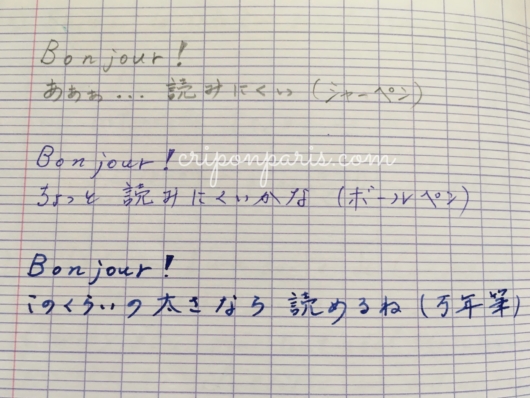 Bonjour!
あああ... 読みにくい (シャーペン)
Bonjour!
criponparis.com
ちょっと 読みにくいかな (ボールペン)
Bonjour!
このくらいの太さなら 読めるね (万年筆)